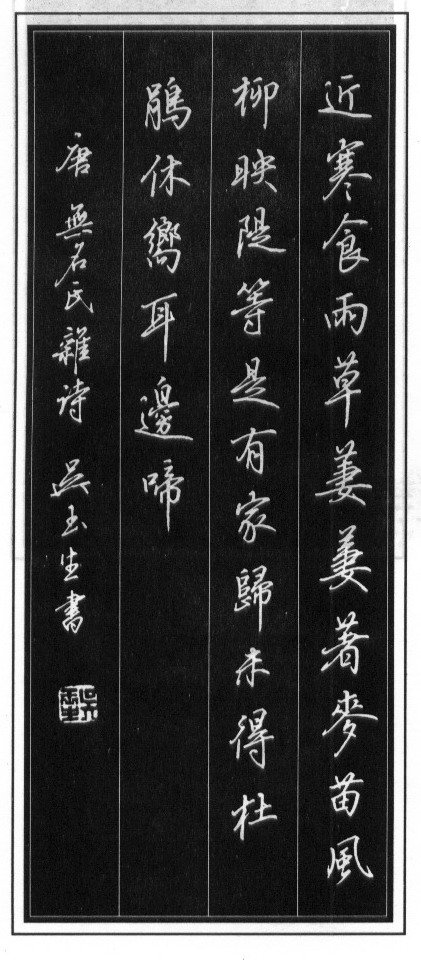 近寒食雨草萋萋著麥苗風
柳映隄等是有家歸未得杜
鵑休嚮耳邊啼
唐 無名氏雜诗 吳玉生書